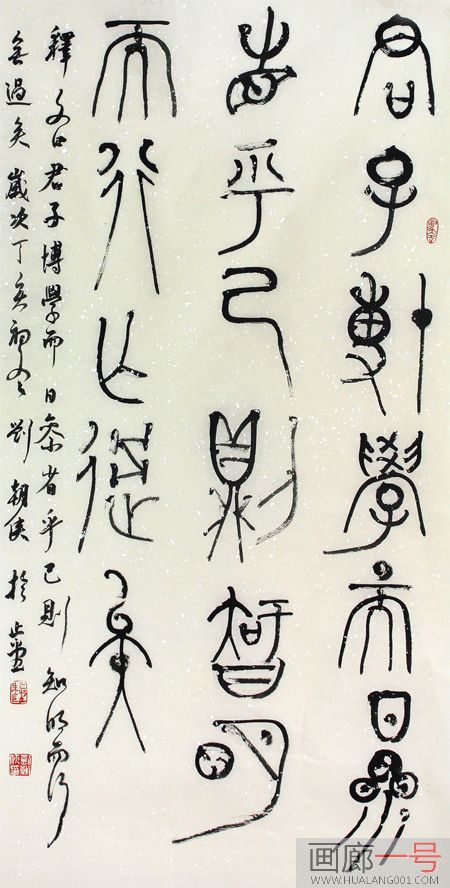 君子博學而日參
省乎己則智明
而行亡過矣
釋文曰君子博學而日參省乎己則知明而行
無過矣 歲次丁亥初冬 劉朝俠 於
画廊一号
WWW.HUALANG001.COM